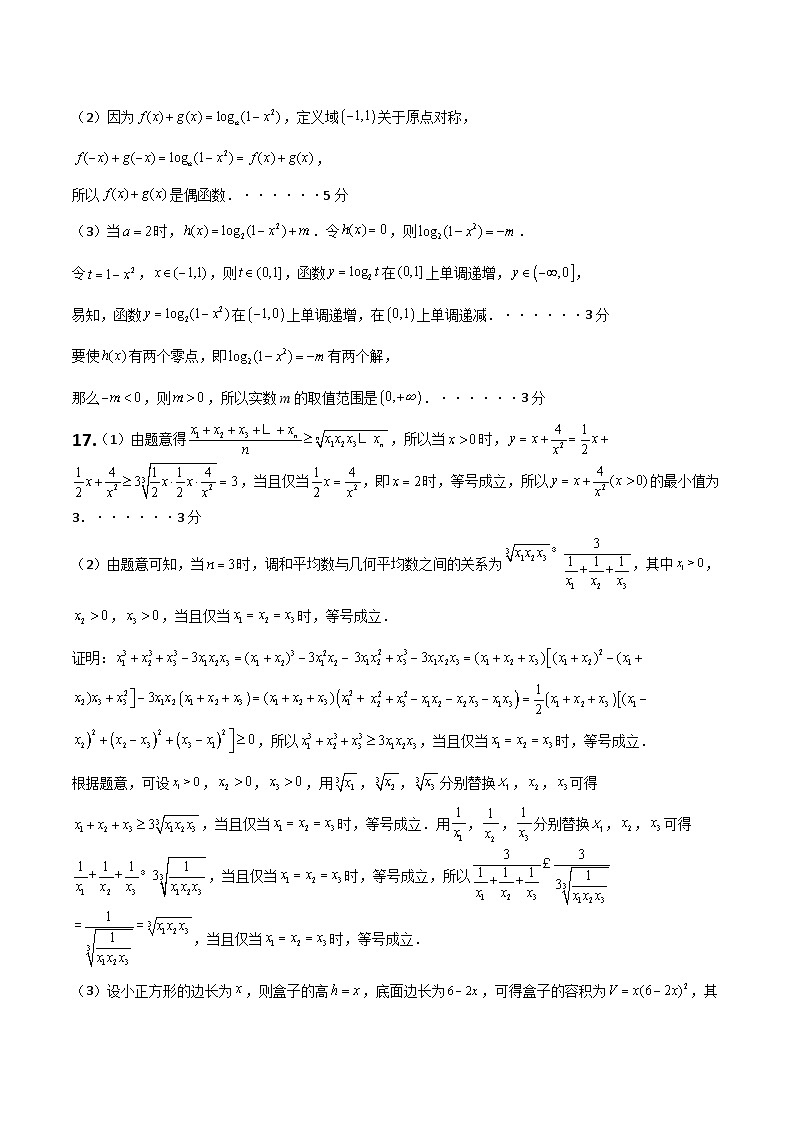 （2）因为 f(x)+g(x)=logₐ(1−x²)，定义域(−1,1)关于原点对称，
f(−x)+g(−x)=logₐ(1−x²)= f(x)+g(x)，
所以 f(x)+g(x)是偶函数．······5 分
（3）当a=2时，h(x)=log₂(1−x²)+m．令h(x)=0，则log₂(1−x²)=−m．
令t=1−x²，x∈(−1,1)，则t∈(0,1]，函数y=log₂t在(0,1]上单调递增，y∈(−∞,0]，
易知，函数y=log₂(1−x²)在(−1,0)上单调递增，在(0,1)上单调递减．······3 分
要使h(x)有两个零点，即log₂(1−x²)=−m有两个解，
那么−m<0，则m>0，所以实数 m 的取值范围是(0,+∞)．······3 分
17.（1）由题意得 (x₁+x₂+x₃+∟+xₙ)/n ≥ ⁿ√(x₁x₂x₃∟ xₙ)，所以当x>0时，y=x+4/x²=1/2x+
1/2x+4/x²≥3∛(1/2x·1/2x·4/x²)=3，当且仅当1/2x=4/x²，即x=2时，等号成立，所以y=x+4/x²(x>0)的最小值为
3．······3 分
（2）由题意可知，当n=3时，调和平均数与几何平均数之间的关系为∛(x₁x₂x₃) ³ 3/(1/x₁+1/x₂+1/x₃)，其中x₁>0，
x₂>0，x₃>0，当且仅当x₁=x₂=x₃时，等号成立．
证明：x₁³+x₂³+x₃³−3x₁x₂x₃=(x₁+x₂)³−3x₁²x₂−3x₁x₂²+x₃³−3x₁x₂x₃=(x₁+x₂+x₃)[(x₁+x₂)²−(x₁+
x₂)x₃+x₃²]−3x₁x₂(x₁+x₂+x₃)=(x₁+x₂+x₃)(x₁²+x₂²+x₃²−x₁x₂−x₂x₃−x₁x₃)=1/2(x₁+x₂+x₃)[(x₁−
x₂)²+(x₂−x₃)²+(x₃−x₁)²]≥0，所以x₁³+x₂³+x₃³≥3x₁x₂x₃，当且仅当x₁=x₂=x₃时，等号成立．
根据题意，可设x₁>0，x₂>0，x₃>0，用∛x₁，∛x₂，∛x₃分别替换x₁，x₂，x₃可得
x₁+x₂+x₃≥3∛(x₁x₂x₃)，当且仅当x₁=x₂=x₃时，等号成立．用1/x₁，1/x₂，1/x₃分别替换x₁，x₂，x₃可得
1/x₁+1/x₂+1/x₃ ³ 3∛(1/(x₁x₂x₃))，当且仅当x₁=x₂=x₃时，等号成立，所以3/(1/x₁+1/x₂+1/x₃) £ 3/(3∛(1/(x₁x₂x₃)))
=1/∛(1/(x₁x₂x₃))=∛(x₁x₂x₃)，当且仅当x₁=x₂=x₃时，等号成立．
（3）设小正方形的边长为x，则盒子的高h=x，底面边长为6−2x，可得盒子的容积为V=x(6−2x)²，其